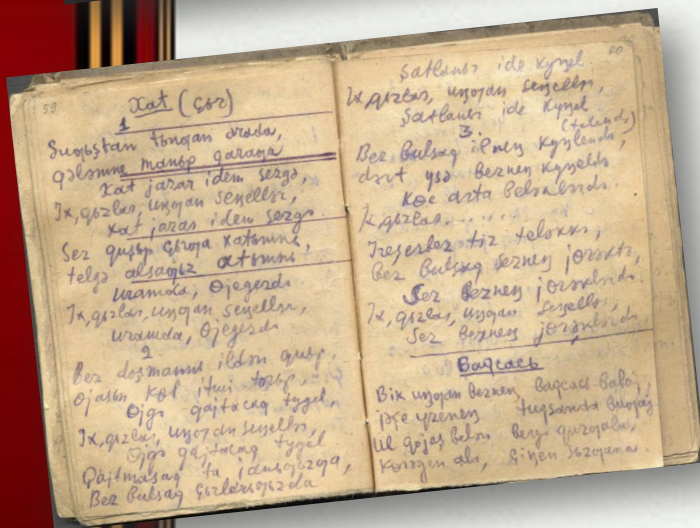 59
Xat (Çьr)
1
Suƣьştan tьnƣan arada,
qələmne manьp qaraƣa
Xat jazar idem sezgə,
Ix, qьzlar, uŋƣan seŋellər,
Xat jazar idem sezgə.
Sez quşьp çьrƣa xatьmnь,
telgə alsaƣьz atьmnь
uramda, ɵjegezdə
Ix, qьzlar, uŋƣan seŋellər,
uramda, ɵjegezdə
2
Bez doşmannь ildən quьp,
ojasьn kɵl itmi torьp,
Ɵjgə qajtacaq tygel,
Ix, qьzlar, uŋƣan seŋellər,
Ɵjgə qajtacaq tygel
Qajtmasaq ta janьƣьzƣa,
Bez bulsaq çьrlarьƣьzda
60
Şatlanьr ide kyŋel.
Ix, qьzlar, uŋƣan seŋellər,
Şatlanьr ide kyŋel
3.
Bez bulsaq ilneŋ
dərt ysə bezneŋ kyŋeldə
Kɵc arta beləklərdə.
Ix, qьzlar.......
Ireşerbez tiz teləkkə,
Bez bulsaq sezneŋ jɵrəktə,
Sez bezneŋ jɵrəklərdə.
Ix, qьzlar, uŋƣan seŋellər,
Sez bezneŋ jɵrəklərdə.
Baqcacь
Bik uŋƣan bezneŋ baqcacь babaj,
yzeneŋ
Ul qojaş belən